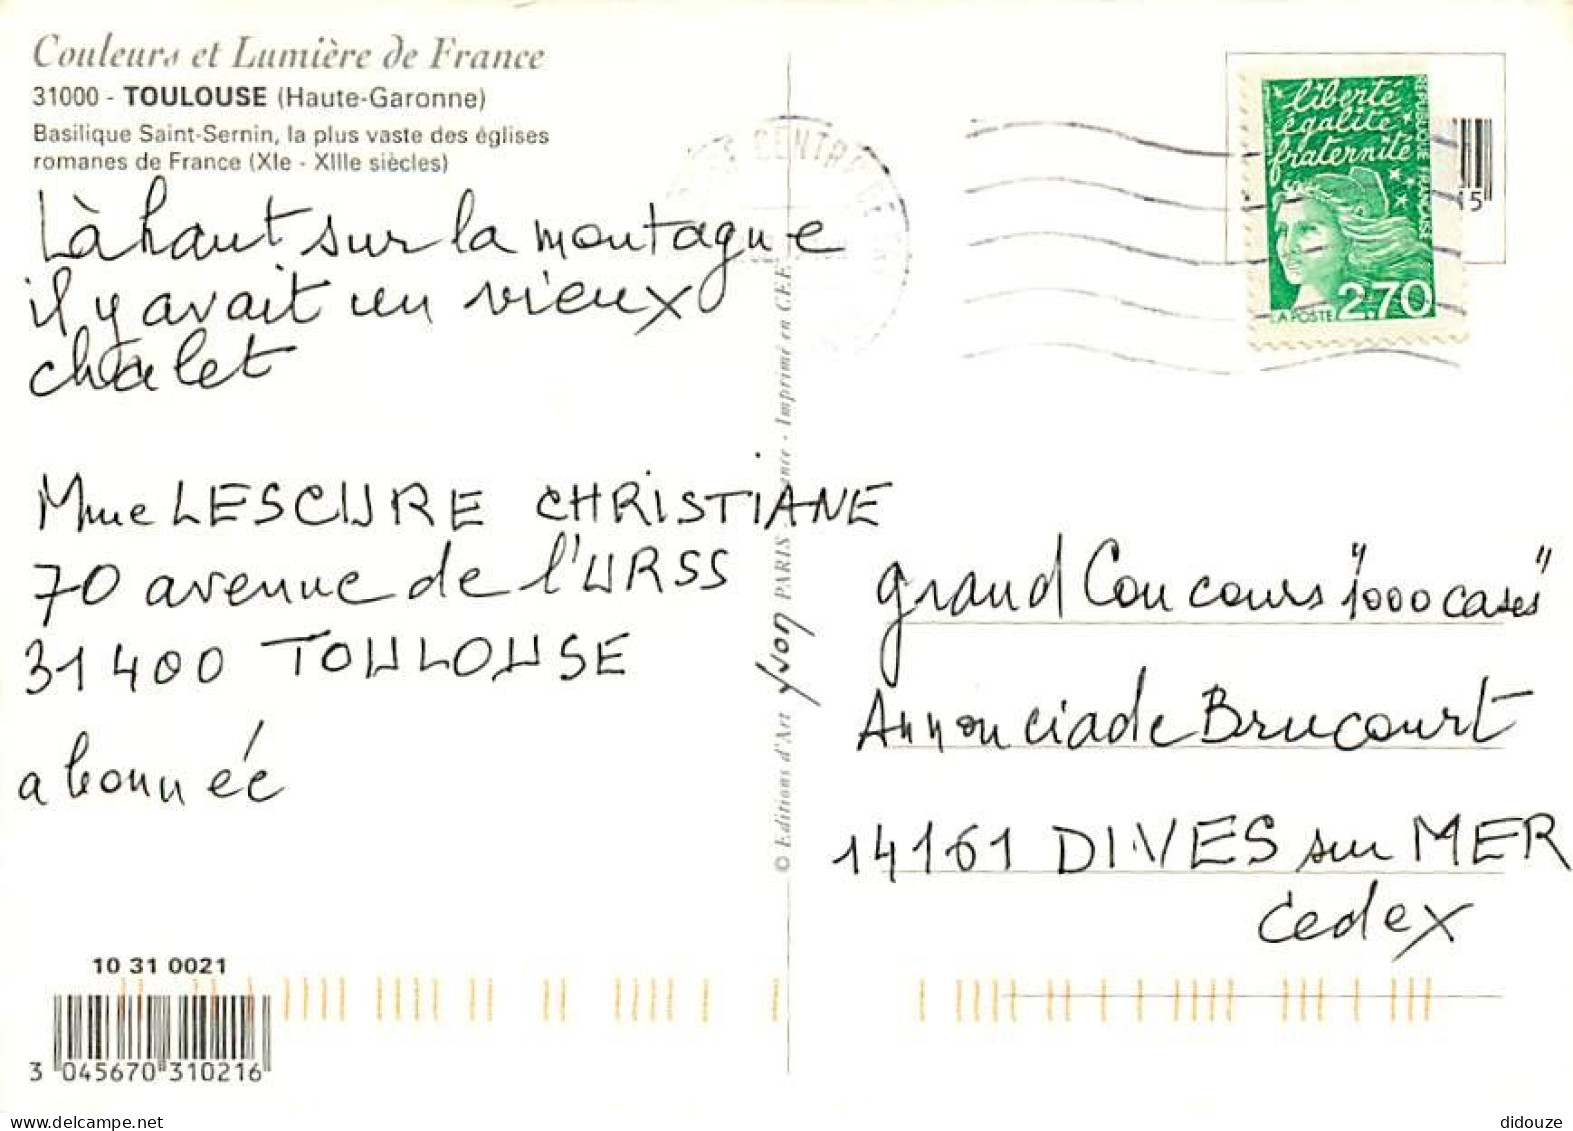 Couleurs et Lumière de France
31000 - TOULOUSE (Haute-Garonne)
Basilique Saint-Sernin, la plus vaste des églises
romanes de France (XIe - XIIIe siècles)
Là haut sur la montagne
il y avait un vieux
chalet
Mme LESCURE CHRISTIANE
70 avenue de l'URSS
31400 TOULOUSE
abonnée
10 31 0021
3 045670 310216
© Editions d'Art Yvon PARIS - Imprimé en C.E.E.
CENTRE
liberté
égalité
fraternité
REPUBLIQUE FRANÇAISE
LA POSTE 2,70
5
grand Concours "1000 cases"
Annonciade Brucourt
14161 DIVES sur MER
Cedex
didouze